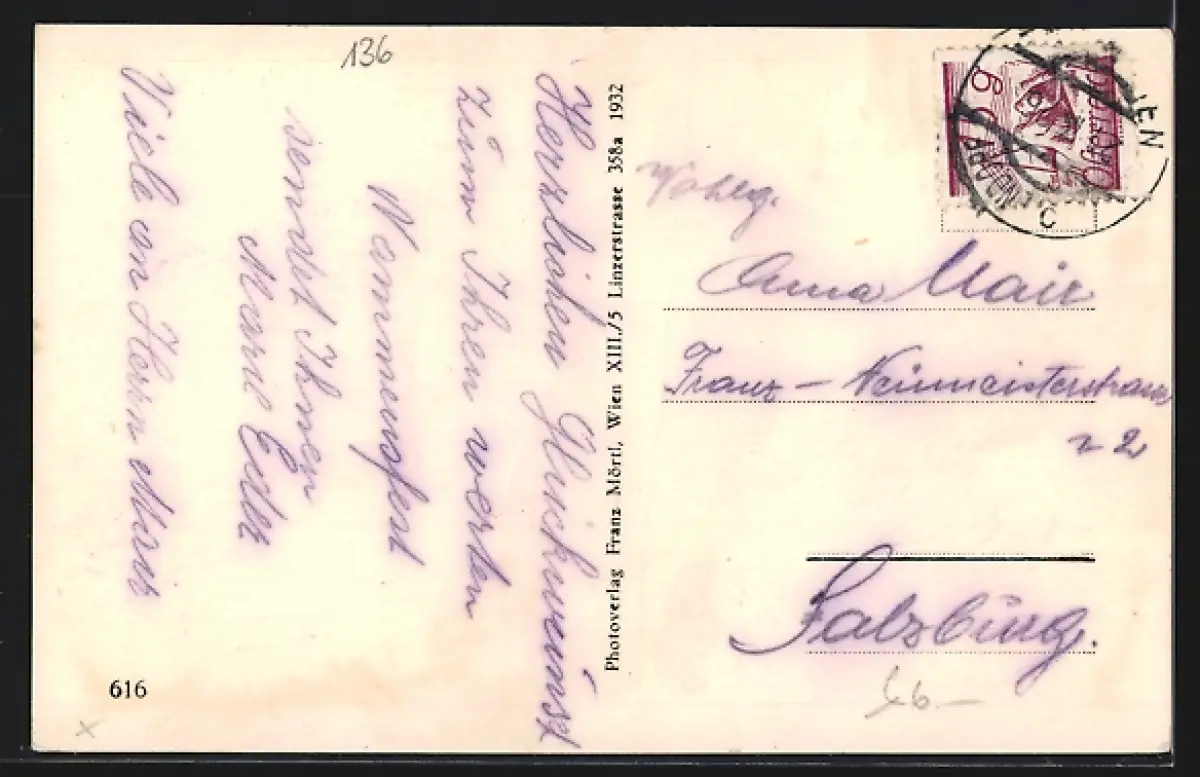 136
Herzlichen Glückwünsch
zum Ihren werten
Nammensfest
sendet Ihnen
Marie
Viele an Herrn Mair
616
Photoverlag Franz Mörtl, Wien XIII./5 Linzerstrasse 358a 1932
Wohlg.
Anna Mair
Franz - Neumeisterstrasse
2
Salzburg.